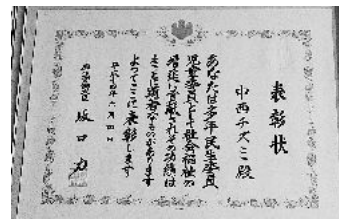 表彰状
中西チズミ殿
あなたは多年民生委員
児童委員として社会福祉の
増進に貢献されその功績は
まことに顕著なものがあります
よってここに表彰します
平成十四年六月四日
厚生労働大臣 坂口力